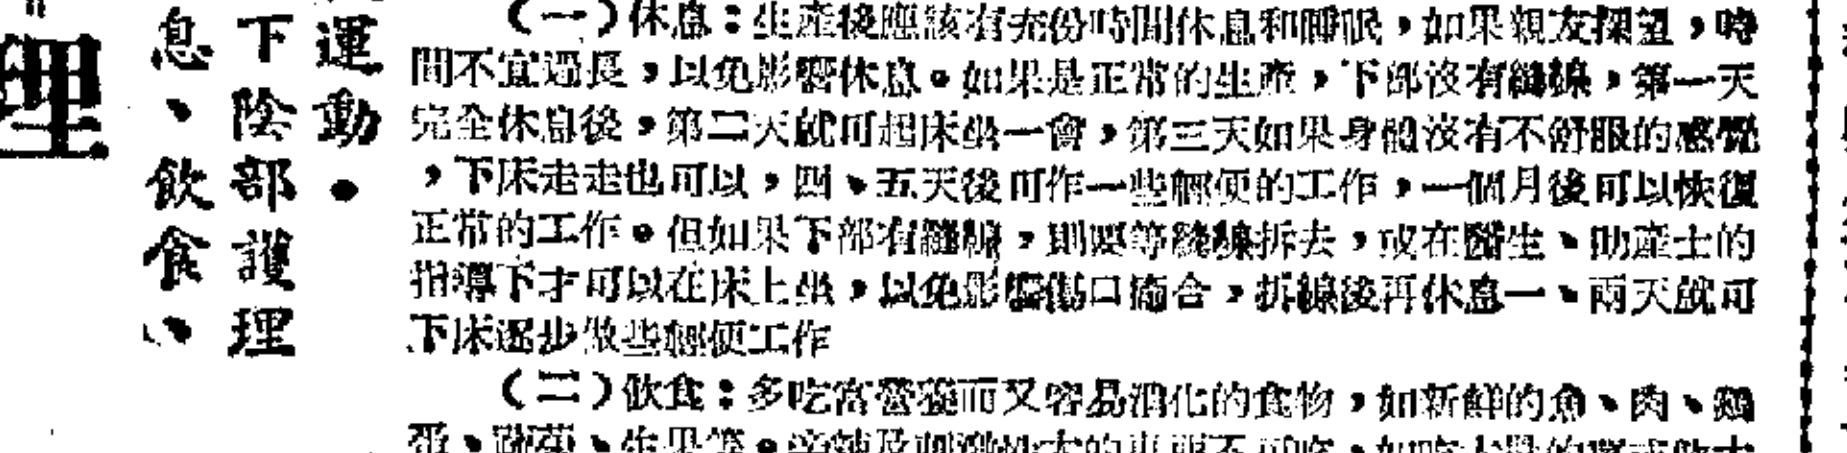 理
運動。
下陰部護理
息、飲食、
（一）休息：生產後應該有充份時間休息和睡眠，如果親友探望，時
間不宜過長，以免影響休息。如果是正常的生產，下部沒有縫線，第一天
完全休息後，第二天就可起床坐一會，第三天如果身體沒有不舒服的感覺
，下床走走也可以，四、五天後可作一些輕便的工作，一個月後可以恢復
正常的工作。但如果下部有縫線，則要等縫線拆去，或在醫生、助產士的
指導下才可以在床上坐，以免影響傷口癒合，拆線後再休息一、兩天就可
下床逐步做些輕便工作
（二）飲食：多吃富營養而又容易消化的食物，如新鮮的魚、肉、鷄
蛋、蔬菜、生果等。